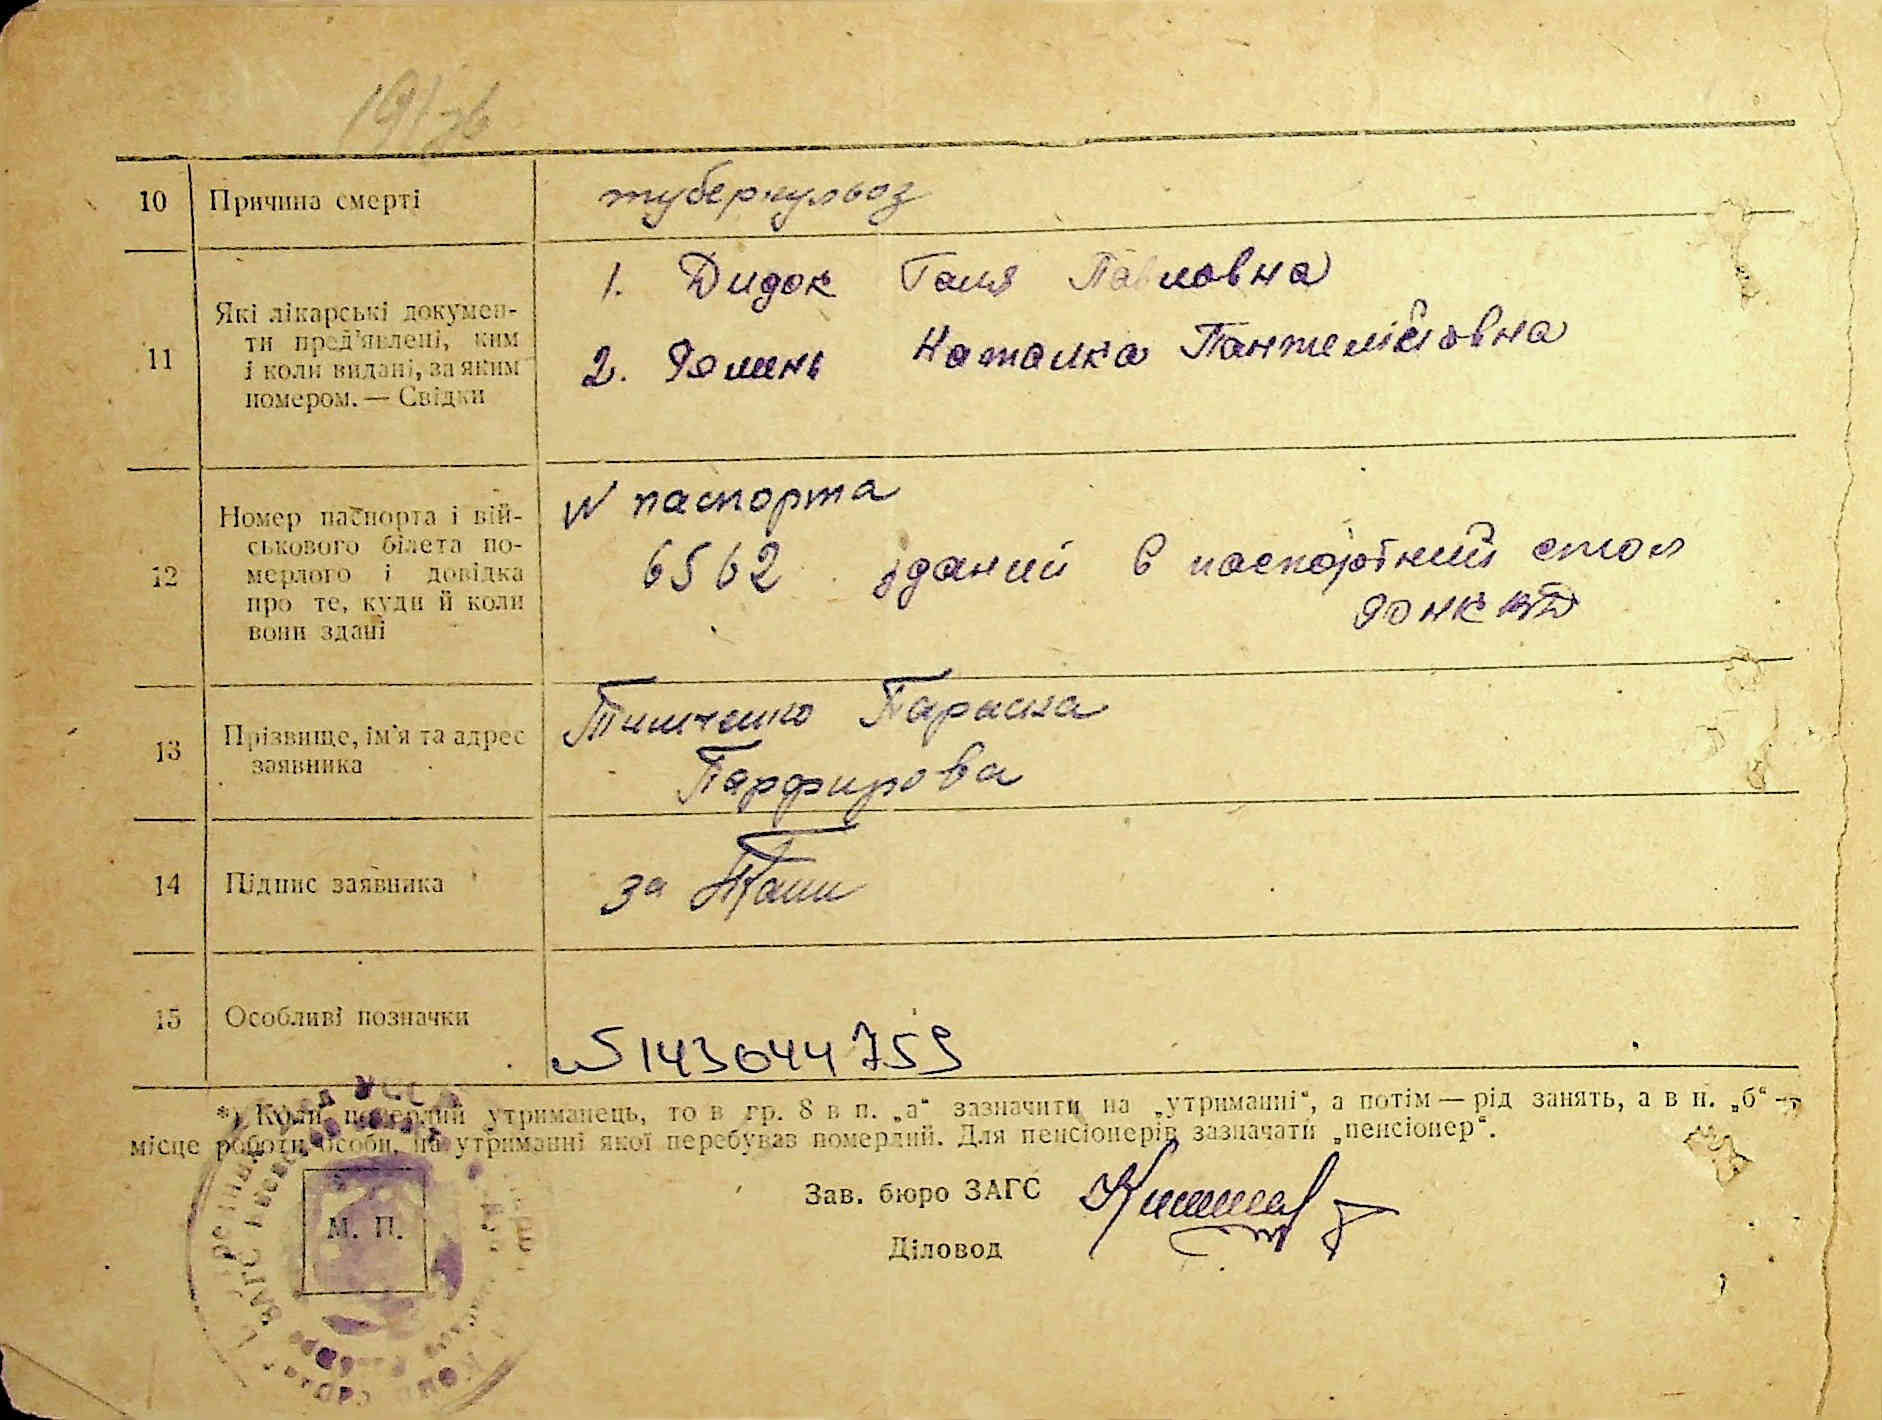 10 Причина смерті туберкульоз
11 Які лікарські докумен-
ти пред'явлені, ким
і коли видані, за яким
номером. — Свідки
1. Дидок Галя Павловна
2. Наталка Пантелійовна
12 Номер паспорта і вій-
ськового білета по-
мерлого і довідка
про те, куди й коли
вони здані
N паспорта
6562 зданий в паспортний стол
РО НКВД
13 Прізвище, ім'я та адрес
заявника
Тимченко Параска
Парфирова
14 Підпис заявника за
15 Особливі позначки
№ 143044759
*) Коли померлий утриманець, то в гр. 8 в п. „а“ зазначити на „утриманні“, а потім — рід занять, а в п. „б“ —
місце роботи особи, на утриманні якої перебував померлий. Для пенсіонерів зазначати „пенсіонер“.
М. П.
Зав. бюро ЗАГС
Діловод